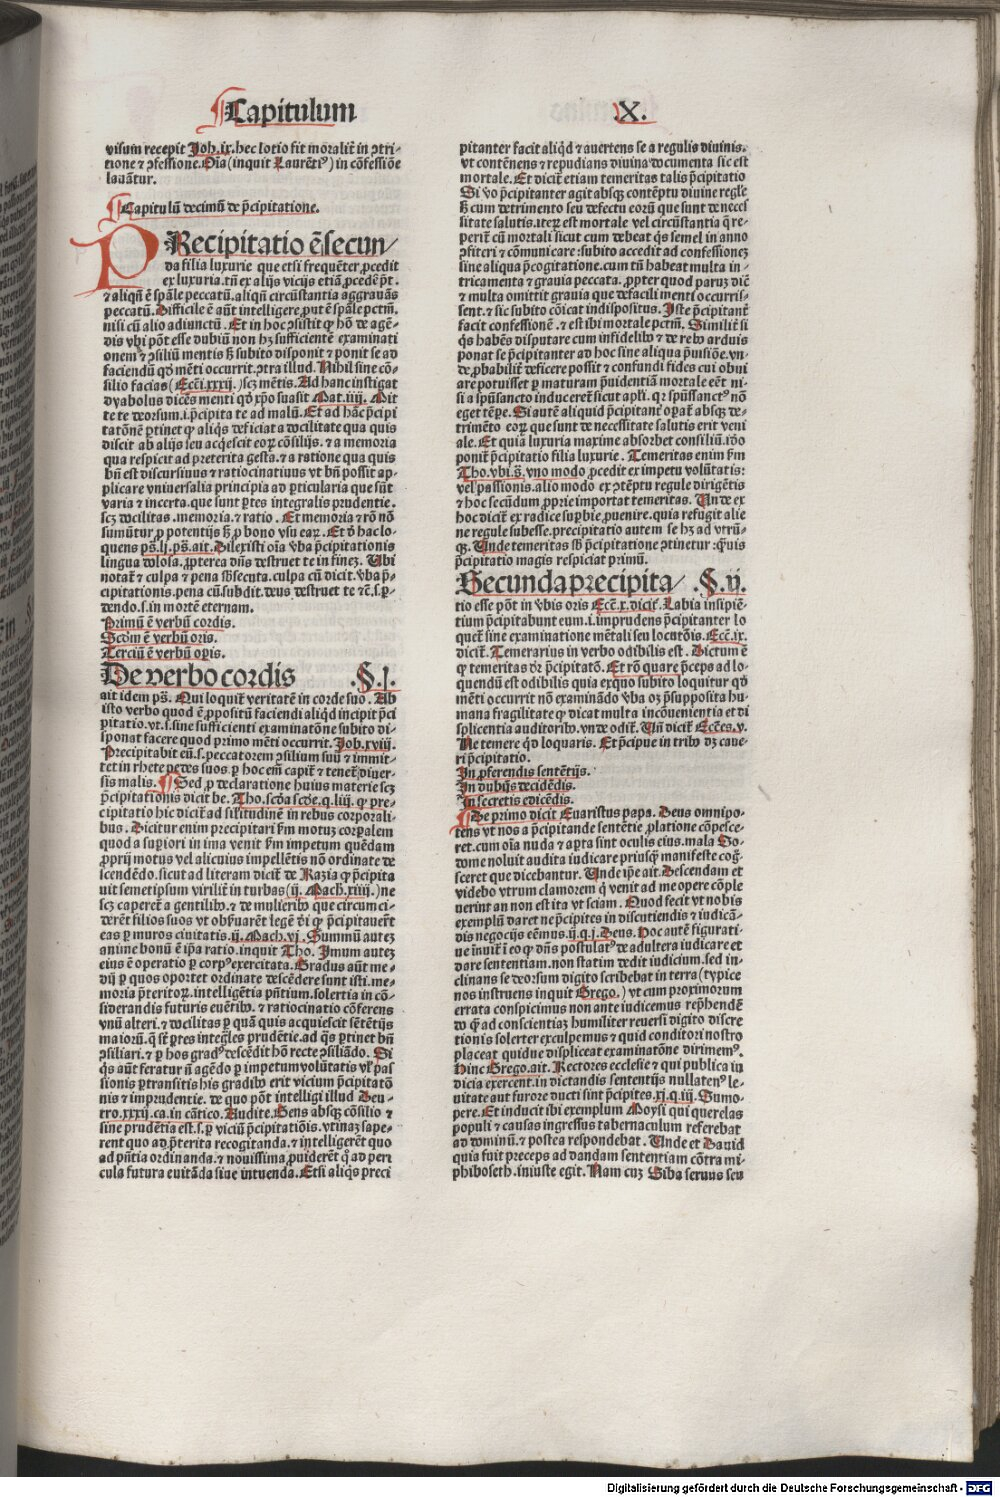 Capitulum
X.
visum recepit Joh.ix.hec lotio fit moralit̄ in ɔtri-
tione ⁊ ɔfessione.Oīa(inquit Laurētiꝰ) in cōfessiōe
lauātur.
Capitulū decimū de p̄cipitatione.
PRecipitatio ē secun/
da filia luxurie que etsi frequēter ꝓcedit
ex luxuria.tn̄ ex alijs vicijs etiā ꝓcedē pōt.
⁊ aliqn̄ ē spāle peccatū.aliqn̄ circūstantia aggrauās
peccatū. Difficile ē aūt intelligere ꝓut ē spāle pctm̄.
nisi cū alio adiunctū. Et in hoc ɔsistit ꝙ hō de agē-
dis vbi pōt esse dubiū non hꝫ sufficientē examinati
onem ⁊ ɔsiliū mentis sꝫ subito disponit ⁊ ponit se ad
faciendū qd̄ mēti occurrit.ɔtra illud. Nihil sine cō-
silio facias(Ecci.xxxij.)scꝫ mētis. Ad hanc instigat
dyabolus dicēs menti qd̄ xp̄o suasit Mat.iiij. Mit
te te deorsum.i.p̄cipita te ad malū. Et ad hāc p̄cipi
tatōnē ꝑtinet ꝙ aliqͥs deficiat a docilitate qua quis
discit ab alijs seu acq̄escit eoꝝ cōsilijs.⁊ a memoria
qua respicit ad preterita gesta.⁊ a ratione qua quis
bn̄ est discursiuus ⁊ ratiocinatiuus vt bn̄ possit ap-
plicare vniuersalia principia ad ꝑticularia que sūt
varia ⁊ incerta.que sunt ꝑtes integralis prudentie.
scꝫ docilitas.memoria.⁊ ratio. Et memoria ⁊ rō nō
sumūtur ꝓ potentijs sꝫ ꝓ bono vsu eaꝝ. Et d̄ hac lo-
quens ps̄.lj.ps̄.ait. Dilexisti oīa v̄ba p̄cipitationis
lingua dolosa.ꝓpterea dn̄s destruet te in fineꝫ. Vbi
notat̄ ⁊ culpa ⁊ pena sb̄secuta.culpa cū dicit.v̄ba p̄-
cipitationis.pena cū subdit.deus destruet te ⁊c̄.s.ꝑ-
dendo.s.in mortē eternam.
Primū ē verbū cordis.
Scd̄m ē verbū oris.
Terciū ē verbū oꝑis.
De verbo cordis .§.j.
ait idem ps̄. Qui loquit̄ veritatē in corde suo. Ab
isto verbo quod ē ꝓpositū faciendi aliqͥd incipit p̄ci
pitatio.vt.s.sine sufficienti examinatōne subito di-
sponat facere quod primo mēti occurrit. Job.xviij.
Precipitabit eū.s.peccatorem ɔsilium suū ⁊ immit-
tet in rhete pedes suos ꝑ hoc em̄ capit̄ ⁊ tenet̄ diuer-
sis malis. Sed ꝓ declaratione huius materie scꝫ
p̄cipitationis dicit be. Tho.scd̄a scd̄e.q.liij.ꝙ pre-
cipitatio hic dicit̄ ad sil̄itudinē in rebus corporali-
bus. Dicitur enim precipitari ẜm motuꝫ corꝑalem
quod a suꝑiori in ima venit ẜm impetum quēdam
ꝓprij motus vel alicuius impellētis nō ordinate de
scendēdo.sicut ad literam dicit̄ de Razia ꝙ p̄cipita
uit semetipsum virilit̄ in turbas(ij. Mach.xiiij.)ne
scꝫ caperet̄ a gentilibꝰ.⁊ de mulieribꝰ que circumci-
derēt filios suos vt obẜuarēt legē dei ꝙ p̄cipitauerūt
eas ꝑ muros ciuitatis.ij. Mach.vj. Summū auteꝫ
anime bonū ē ip̄a ratio.inquit Tho. Imum auteꝫ
eius ē operatio ꝑ corpꝰ exercitata. Gradus aūt me-
dij ꝑ quos oportet ordinate descēdere sunt isti.me-
moria p̄teritoꝝ.intelligētia pn̄tium.solertia in cō-
siderandis futuris euētibꝰ.⁊ ratiocinatio cōferens
vnū alteri.⁊ docilitas ꝑ quā quis acquiescit sētētijs
maioꝝ.q̄ st̄ ꝑtes integͣles prudētie.ad qͣs ꝑtinet bn̄
ɔsiliari.⁊ ꝑ hos gradꝰ descēdit hō recte ɔsiliādo. Si
qͥs aūt feratur ī agēdo ꝑ impetum volūtatis vl̓ pas
sionis ꝑtransitis his gradibꝰ erit vicium p̄cipitatō
nis ⁊ imprudentie. de quo pōt intelligi illud Deu-
tro.xxxij.ca.in cātico. Audite. Gens absqꝫ cōsilio ⁊
sine prudētia est.s.ꝑ viciū p̄cipitatiōis.vtinaꝫ sape-
rent quo ad p̄terita recogitanda.⁊ intelligerēt quo
ad pn̄tia ordinanda.⁊ nouissima ꝓuiderēt qͦ ad peri
cula futura euitāda siue intuenda. Etsi aliqͥs preci
pitanter facit aliqͥd ⁊ auertens se a regulis diuinis.
vt contēnens ⁊ repudians diuina documenta sic est
mortale. Et dicit̄ etiam temeritas talis p̄cipitatio
Si v̓o p̄cipitanter agit absqꝫ contēptu diuine regl̓e
sꝫ cum detrimento seu defectu eorū que sunt de neces
sitate salutis.iteꝝ est mortale vel circūstantia q̄ re-
perit̄ cū mortali sicut cum debeat qͥs semel in anno
ɔfiteri ⁊ cōmunicare:subito accedit ad confessioneꝫ
sine aliqua p̄cogitatione.cum tn̄ habeat multa in-
tricamenta ⁊ grauia peccata. ꝓpter quod paruꝫ dic̄
⁊ multa omittit grauia que defacili menti occurris-
sent.⁊ sic subito cōicat indispositus. Iste p̄cipitant̄
facit confessionē.⁊ est ibi mortale pctm̄. Similit̄ si
qͥs habēs disputare cum infidelibꝰ ⁊ de rebꝰ arduis
ponat se p̄cipitanter ad hoc sine aliqua p̄uisiōe.vn-
de ꝓbabilit̄ deficere possit ⁊ confundi fides cui obui
are potuisset ꝑ maturam ꝓuidentiā mortale eēt ni-
si a spūsancto induceret̄ sicut apl̓i.qꝛ spūssanctꝰ nō
eget tēꝑe. Si autē aliquid p̄cipitant̄ oꝑat̄ absqꝫ de-
trimēto eoꝝ que sunt de necessitate salutis erit veni
ale. Et quia luxuria maxime absorbet consiliū.iō
ponit̄ p̄cipitatio filia luxurie. Temeritas enim ẜm
Tho.vbi.s̄. vno modo ꝓcedit ex impetu volūtatis:
vel passionis.alio modo ex ɔtēptu regule dirigētis
⁊ hoc secūdum ꝓprie importat temeritas. Vnde ex
hoc dicit̄ ex radice suꝑbie ꝓuenire.quia refugit alie
ne regule subesse.precipitatio autem se hꝫ ad vtrū-
qꝫ. Unde temeritas sb̄ p̄cipitatione ɔtinetur:qͣuis
p̄cipitatio magis respiciat primū.
Secunda precipita/ .§.ij.
tio esse pōt in v̄bis oris Ecc̄e.x.dicit̄. Labia insipiē-
tium p̄cipitabunt eum.i.imprudens p̄cipitanter lo
quet̄ sine examinatione mētali seu locutōis. Ecc̄e.ix.
dicit̄. Temerarius in verbo odibilis est. Dictum ē
ꝙ temeritas dr̄ p̄cipitatō. Et rō quare p̄ceps ad lo-
quendū est odibilis quia exqͦ subito loquitur qd̄
mēti occurrit nō examinādo v̄ba oꝫ p̄supposita hu-
mana fragilitate ꝙ dicat multa incōuenientia et di
splicentia auditoribꝰ.vnde odit̄. Vn̄ dicit̄ Ecc̄es.v.
Ne temere qͥd loquaris. Et p̄cipue in tribꝰ dꝫ caue-
ri p̄cipitatio.
In ꝓferendis sentētijs.
In dubijs decidēdis.
In secretis edicēdis.
De primo dicit Euaristus papa. Deus omnipo-
tens vt nos a p̄cipitande sentētie ꝓlatione cōpesce-
ret.cum oīa nuda ⁊ aꝑta sint oculis eius.mala So-
dome noluit audita iudicare priusqͣꝫ manifeste cog̓-
sceret que dicebantur. Unde ip̄e ait. Descendam et
videbo vtrum clamorem qͥ venit ad me opere cōple
uerint an non est ita vt sciam. Quod fecit vt nobis
exemplū daret ne p̄cipites in discutiendis ⁊ iudicā-
dis negocijs eēmus.ij.q.j. Deus. Hoc autē figurati-
ue inuit̄ ī eo ꝙ dn̄s postulatꝰ de adultera iudicare et
dare sententiam.non statim dedit iudicium.sed in-
clinans se deorsum digito scribebat in terra(typice
nos instruens inquit Grego.) vt cum proximorum
errata conspicimus non ante iudicemus rep̄hendē
do qͣꝫ ad conscientiaꝫ humiliter reuersi digito discre
tionis solerter exculpemus ⁊ quid conditori nostro
placeat quidue displiceat examinatōne dirimemꝰ.
Hinc Grego.ait. Rectores ecclesie ⁊ qui publica iu
dicia exercent.in dictandis sententijs nullatenꝰ le-
uitate aut furore ducti sint p̄cipites.xj.q.iij. Summo-
pere. Et inducit ibi exemplum Moysi qui querelas
populi ⁊ causas ingressus tabernaculum referebat
ad dominū.⁊ postea respondebat. Unde et Dauid
quia fuit preceps ad dandam sententiam cōtra mi-
phiboseth.iniuste egit. Nam cuꝫ Siba seruus seu
Digitalisierung gefördert durch die Deutsche Forschungsgemeinschaft - DFG